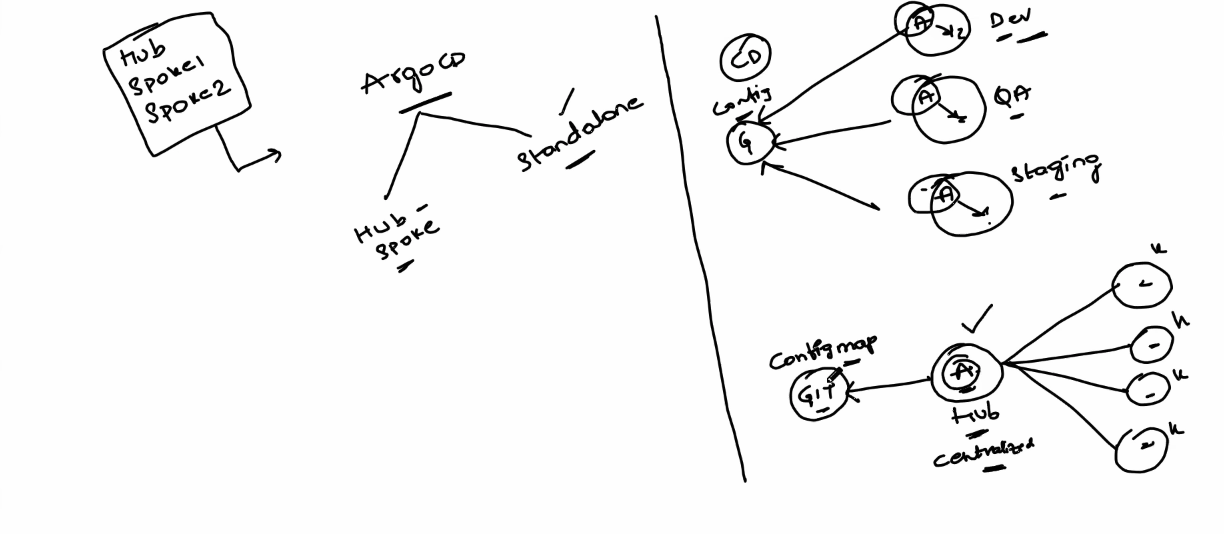 Hub
Spoke1
Spoke2
ArgoCD
Standalone
Hub -
Spoke
CD
Config
G
A
Dev
A
QA
A
Staging
Config map
GIT
A
Hub
Centralized
K
K
K
K